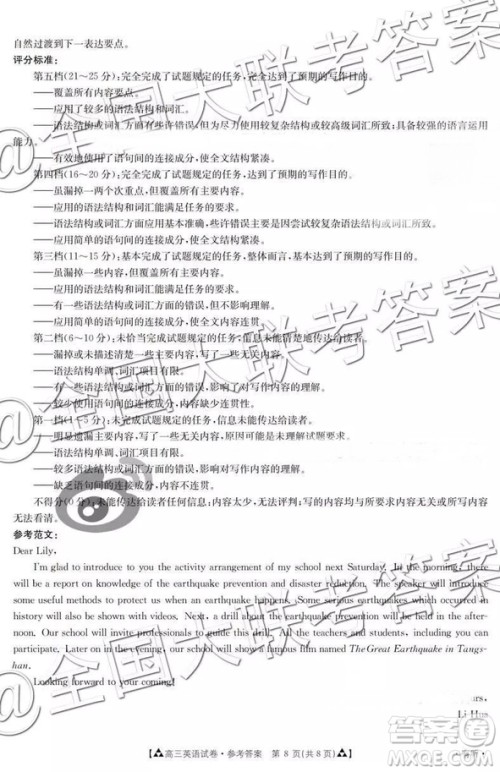 自然过渡到下一表达要点。
评分标准：
第五档(21～25分)：完全完成了试题规定的任务，完全达到了预期的写作目的。
——覆盖所有内容要点。
——应用了较多的语法结构和词汇。
——语法结构或词汇方面有些许错误，但为尽力使用较复杂结构或较高级词汇所致；具备较强的语言运用
能力。
——有效地使用了语句间的连接成分，使全文结构紧凑。
第四档(16～20分)：完全完成了试题规定的任务，达到了预期的写作目的。
——虽漏掉一两个次重点，但覆盖所有主要内容。
——应用的语法结构和词汇能满足任务的要求。
——语法结构或词汇方面应用基本准确，些许错误主要是因尝试较复杂语法结构或词汇所致。
——应用简单的语句间的连接成分，使全文结构紧凑。
第三档(11～15分)：基本完成了试题规定的任务，整体而言，基本达到了预期的写作目的。
——虽漏掉一些内容，但覆盖所有主要内容。
——应用的语法结构和词汇能满足任务的要求。
——有一些语法结构或词汇方面的错误，但不影响理解。
——应用简单的语句间的连接成分，使全文内容连贯。
第二档(6～10分)：未恰当完成试题规定的任务，信息未能清楚地传达给读者。
——漏掉或未描述清楚一些主要内容，写了一些无关内容。
——语法结构单调、词汇项目有限。
——有一些语法结构或词汇方面的错误，影响了对写作内容的理解。
——较少使用语句间的连接成分，内容缺少连贯性。
第一档(1～5分)：未完成试题规定的任务，信息未能传达给读者。
——明显遗漏主要内容，写了一些无关内容，原因可能是未理解试题要求。
——语法结构单调、词汇项目有限。
——较多语法结构或词汇方面的错误，影响对写作内容的理解。
——缺乏语句间的连接成分，内容不连贯。
不得分(0分)：未能传达给读者任何信息；内容太少，无法评判；写的内容均与所要求内容无关或所写内容
无法看清。
参考范文：
Dear Lily,
I'm glad to introduce to you the activity arrangement of my school next Saturday. In the morning, there
will be a report on knowledge of the earthquake prevention and disaster reduction. The speaker will introduce
some useful methods to protect us when an earthquake happens. Some serious earthquakes which occurred in
history will also be shown by videos. Next, a drill about the earthquake prevention will be held in the after-
noon. Our school will invite professionals to guide this drill. All the teachers and students, including you can
participate. Later on in the evening, our school will show a famous film named The Great Earthquake in Tangs-
han.
Looking forward to your coming!
Li Hua
高三英语试卷·参考答案 第 8 页(共 8 页)
@全国大联考答案
@全国大联考答案
@全国大联考答案